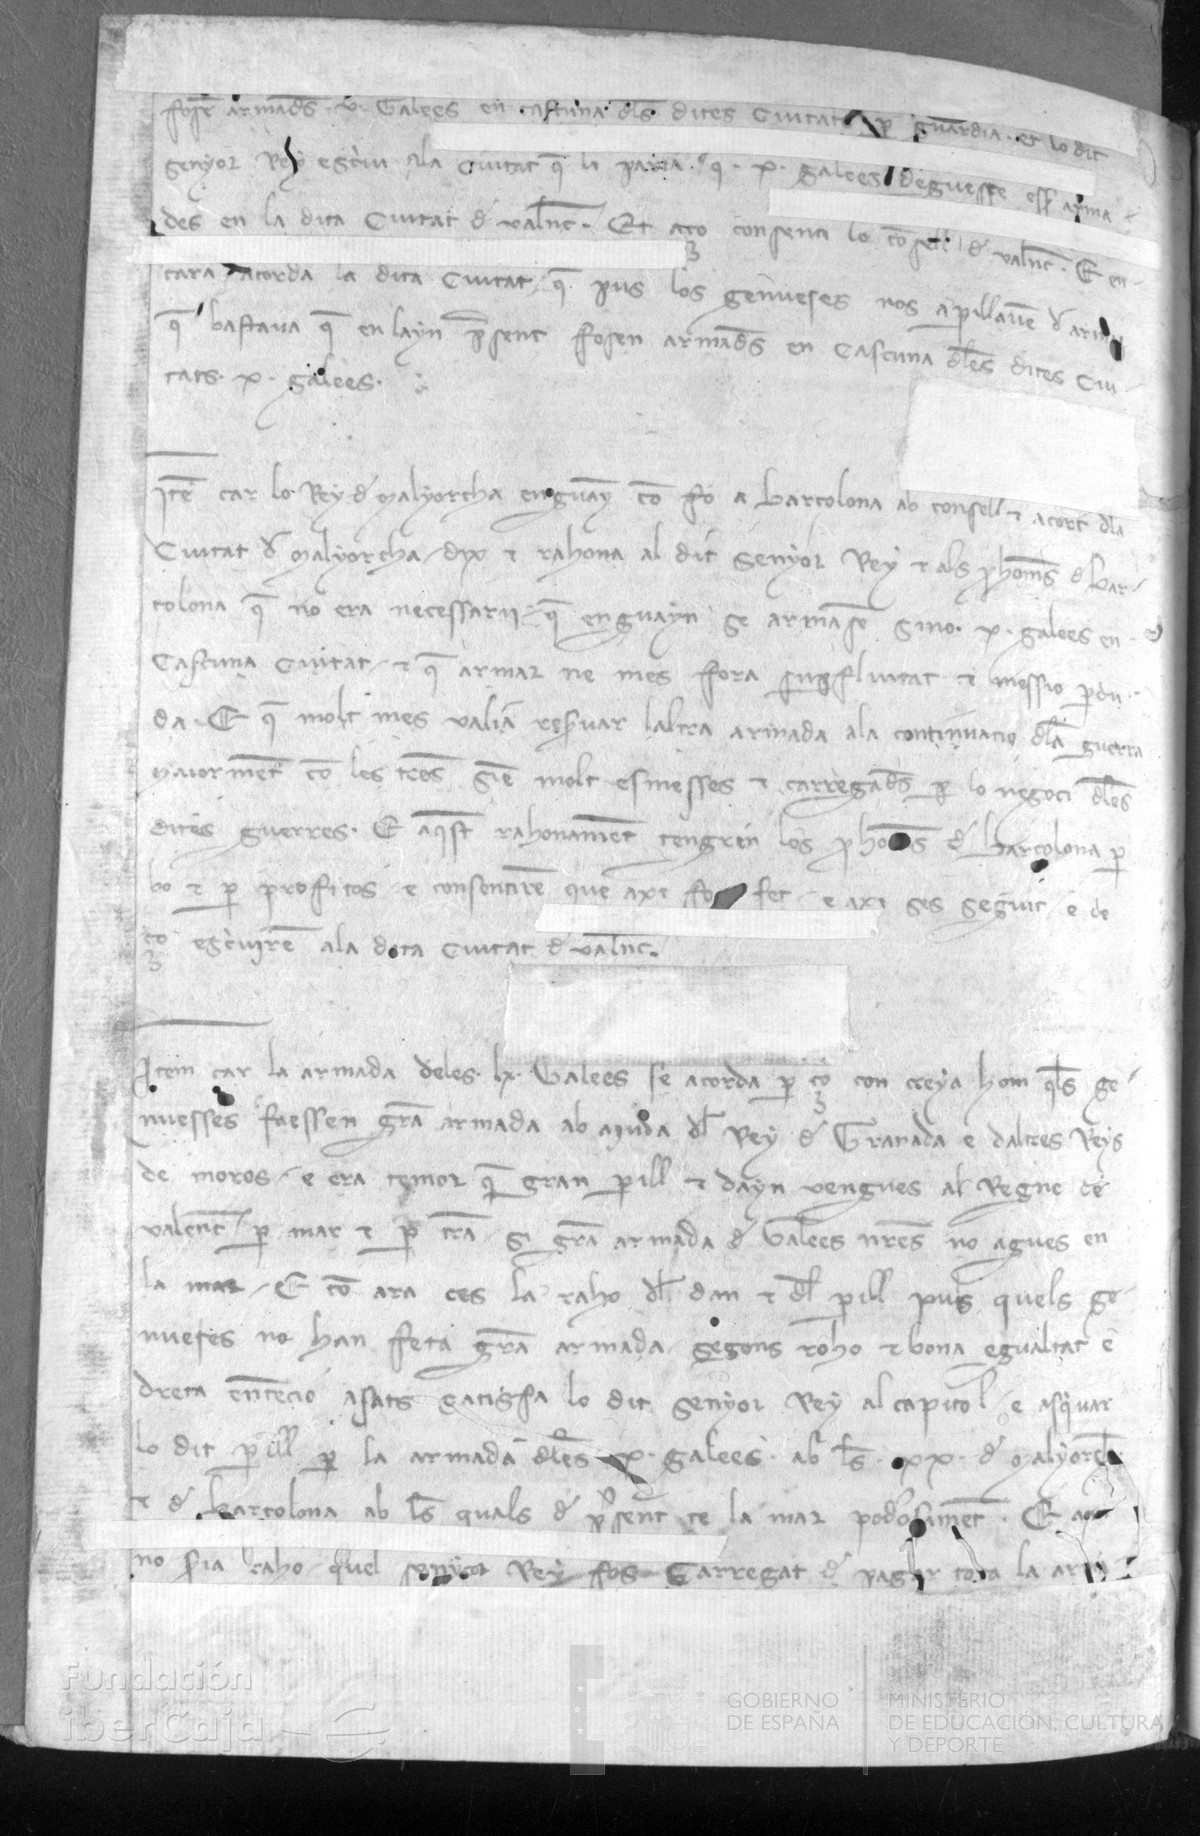 fosē armads · v · Galees en cascuna dls dites Ciutats p guardia · et lo dit
senyor Rey escriui ala Ciutat q̄ li paria q · x · galees deguessē esser arma
des en la dita Ciutat d̄ valn̄c · Et aço consenti lo cōsell d̄ valn̄c · E en
cara acorda la dita Ciutat q̄ pus los genueses nos apillauē d armar
q̄ bastaua q̄ en layn p̄sent fosen armads en Cascuna dles dites Ciu
tats · x · galees ·
Itē car lo Rey d̄ Malyorcha enguay cō fo a Barcolona ab consell ⁊ acort dla
Ciutat d̄ Malyorcha dix ⁊ rahona al dit senyor Rey ⁊ als p̄homs d̄ Bar
colona q̄ no era necessarii q̄ enguayn se armasē sino · x · galees en
Cascuna Ciutat ⁊ q̄ armar ne mes fora supfluitat ⁊ messio pdu
da · E q̄ molt mes valia resuar laltra armada ala continuacio dla guerra
Maiormēt cō les tr̄es siē molt esmesses ⁊ carregads p lo negoci dles
dites guerres · E aq̄st rahonamēt tengren los p̄homs d̄ Barcolona p
bo ⁊ p profitos e consentirē que axi fos fet e axi ses seguit e de
ço escuirē ala dita Ciutat d̄ valn̄c ·
Item car la armada deles · lx · Galees se acorda p ço con creya hom q̄ls ge
nuesses faessen grā armada ab aiuda dl Rey d̄ Granada e daltres Reys
de moros e era temor q̄ gran pill ⁊ dayn vengues al Regne de
valenc̄ p mar ⁊ p tr̄a si grā armada d̄ Galees nr̄es no agues en
la mar · E cō ara ces la raho dl dan ⁊ dl pill pus quels ge
nueses no han feta grā armada segons roho ⁊ bona egualtat e
dreta entēcio asats satisfa lo dit senyor Rey al capitol e asquar
lo dit pill p la armada dles · x · galees · ab ls · xx · d̄ Malyorch̄
⁊ d̄ Barcolona ab ls quals d̄ p̄sent te la mar poderosamēt · E aço
no sia raho quel senyor Rey fos Carregat d̄ pagar tota la arm
Fundación
iberCaja
GOBIERNO
DE ESPAÑA
MINISTERIO
DE EDUCACIÓN, CULTURA
Y DEPORTE